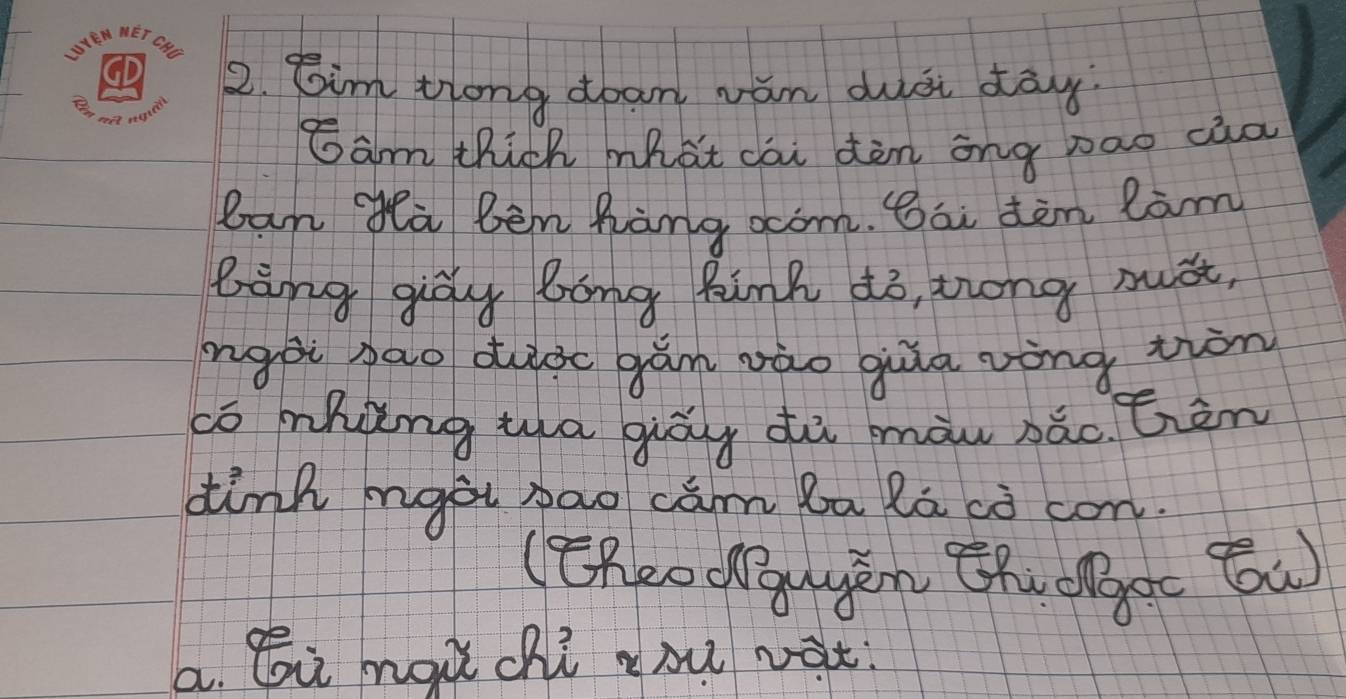 LUYỆN NÉT CHỮ
GD
Rèn nết người
2. Tìm trong đoạn văn dưới đây:
Tâm thích nhất cái đèn ông sao của
bạn Hà bên hàng xóm. Cái đèn làm
bằng giấy bóng kính đỏ, trong suốt,
ngôi sao được gắn vào giữa vòng tròn
có những tua giấy đủ màu sắc. Trên
đỉnh ngôi sao cắm ba lá cờ con.
(Theo Nguyễn Thị Ngọc Tú)
a. Từ ngữ chỉ sự vật: